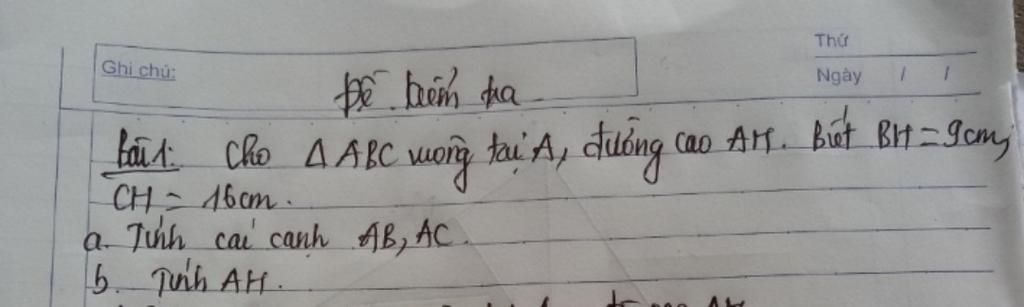 Thứ
Ghi chú:
Ngày / /
Đề kiểm tra
Bài 1: Cho Δ ABC vuông tại A, đường cao AH. Biết BH = 9cm,
CH = 16cm.
a. Tính các cạnh AB, AC.
b. Tính AH.